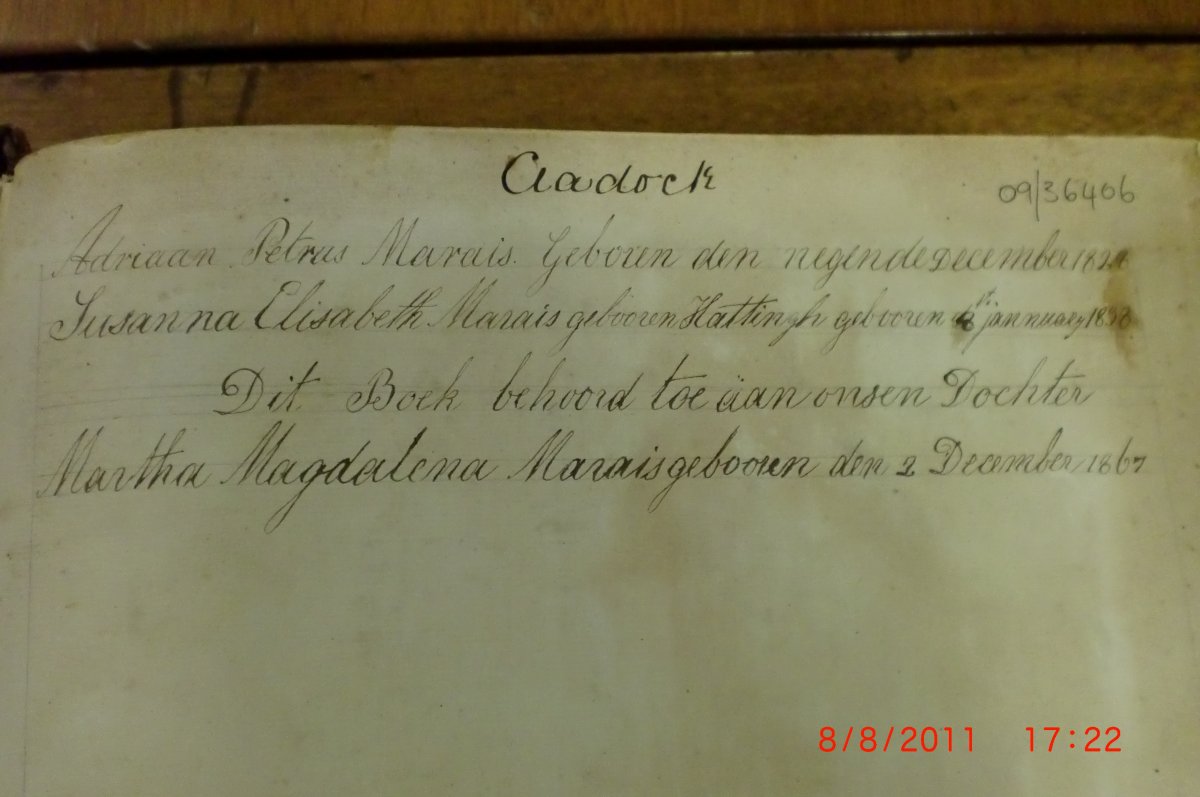 Cradock
09/36406
Adriaan Petrus Marais. Geboren den negende December
Susanna Elisabeth Marais gebooren Hattingh gebooren jannuary
Dit Boek behoord toe äan onsen Dochter
Martha Magdalena Marais gebooren den 2 December 1867
8/8/2011 17:22